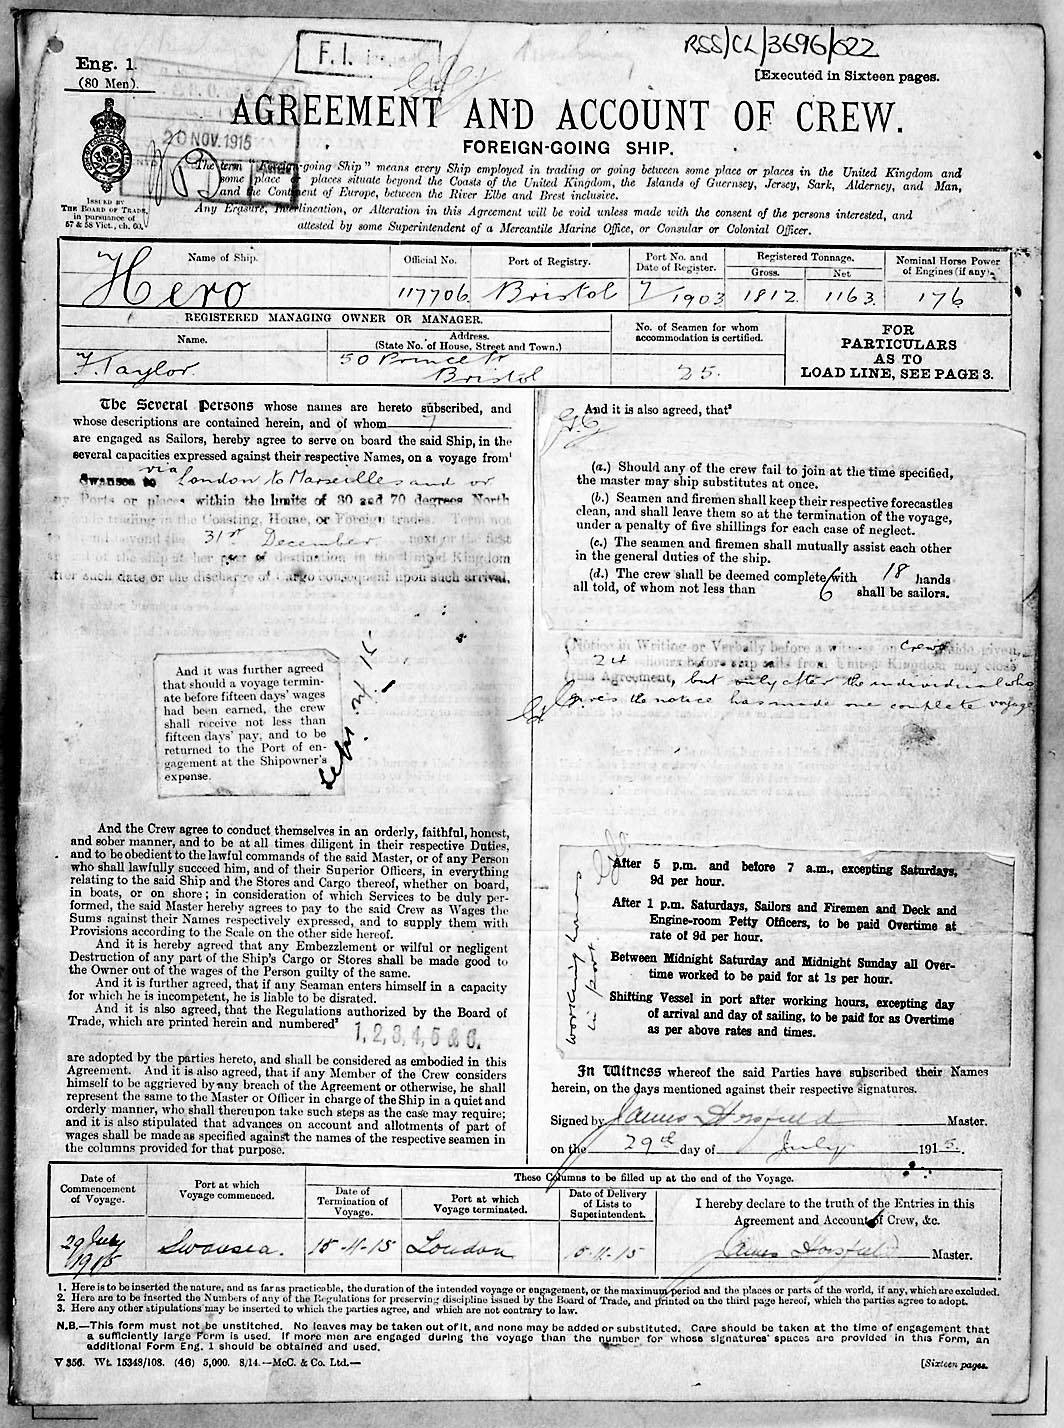 RSS/CL/3696/622
F. I.
Eng. 1.
(80 Men).
[Executed in Sixteen pages.
20 NOV. 1915
AGREEMENT AND ACCOUNT OF CREW.
FOREIGN-GOING SHIP.
The term "Foreign-going Ship" means every Ship employed in trading or going between some place or places in the United Kingdom and
some place or places situate beyond the Coasts of the United Kingdom, the Islands of Guernsey, Jersey, Sark, Alderney, and Man,
and the Continent of Europe, between the River Elbe and Brest inclusive.
Any Erasure, Interlineation, or Alteration in this Agreement will be void unless made with the consent of the persons interested, and
attested by some Superintendent of a Mercantile Marine Office, or Consular or Colonial Officer.
ISSUED BY
THE BOARD OF TRADE,
in pursuance of
57 & 58 Vict., ch. 60.
Name of Ship. Official No. Port of Registry. Port No. and Date of Register. Registered Tonnage. Gross. Net Nominal Horse Power of Engines (if any).
Hero 117706 Bristol 7/1903 1812 1163 176
REGISTERED MANAGING OWNER OR MANAGER.
Name. Address. (State No. of House, Street and Town.) No. of Seamen for whom accommodation is certified.
FOR
PARTICULARS
AS TO
LOAD LINE, SEE PAGE 3.
F. Taylor. 50 Prince St
Bristol 25.
The Several Persons whose names are hereto subscribed, and
whose descriptions are contained herein, and of whom 7
are engaged as Sailors, hereby agree to serve on board the said Ship, in the
several capacities expressed against their respective Names, on a voyage from¹
via
Swansea to London to Marseilles and or
any Ports or places within the limits of 80 and 70 degrees North
trading in the Coasting, Home, or Foreign trades. Term not
to extend beyond the 31st December next or the first
of the ship at her port of destination in the United Kingdom
after such date or the discharge of Cargo consequent upon such arrival,
And it was further agreed
that should a voyage termin-
ate before fifteen days' wages
had been earned, the crew
shall receive not less than
fifteen days' pay, and to be
returned to the Port of en-
gagement at the Shipowner's
expense.
And the Crew agree to conduct themselves in an orderly, faithful, honest,
and sober manner, and to be at all times diligent in their respective Duties,
and to be obedient to the lawful commands of the said Master, or of any Person
who shall lawfully succeed him, and of their Superior Officers, in everything
relating to the said Ship and the Stores and Cargo thereof, whether on board,
in boats, or on shore; in consideration of which Services to be duly per-
formed, the said Master hereby agrees to pay to the said Crew as Wages the
Sums against their Names respectively expressed, and to supply them with
Provisions according to the Scale on the other side hereof.
And it is hereby agreed that any Embezzlement or wilful or negligent
Destruction of any part of the Ship's Cargo or Stores shall be made good to
the Owner out of the wages of the Person guilty of the same.
And it is further agreed, that if any Seaman enters himself in a capacity
for which he is incompetent, he is liable to be disrated.
And it is also agreed, that the Regulations authorized by the Board of
Trade, which are printed herein and numbered²
1, 2, 3, 4, 5 & 6.
are adopted by the parties hereto, and shall be considered as embodied in this
Agreement. And it is also agreed, that if any Member of the Crew considers
himself to be aggrieved by any breach of the Agreement or otherwise, he shall
represent the same to the Master or Officer in charge of the Ship in a quiet and
orderly manner, who shall thereupon take such steps as the case may require;
and it is also stipulated that advances on account and allotments of part of
wages shall be made as specified against the names of the respective seamen in
the columns provided for that purpose.
And it is also agreed, that³
(a.) Should any of the crew fail to join at the time specified,
the master may ship substitutes at once.
(b.) Seamen and firemen shall keep their respective forecastles
clean, and shall leave them so at the termination of the voyage,
under a penalty of five shillings for each case of neglect.
(c.) The seamen and firemen shall mutually assist each other
in the general duties of the ship.
(d.) The crew shall be deemed complete with 18 hands
all told, of whom not less than 6 shall be sailors.
Notice in Writing or Verbally before a witness on Crew's side given,
24 hours before ship sails from United Kingdom may close
this Agreement, but only after the individual who
gives the notice has made one complete voyage
working hours
in port
After 5 p.m. and before 7 a.m., excepting Saturdays,
9d per hour.
After 1 p.m. Saturdays, Sailors and Firemen and Deck and
Engine-room Petty Officers, to be paid Overtime at
rate of 9d per hour.
Between Midnight Saturday and Midnight Sunday all Over-
time worked to be paid for at 1s per hour.
Shifting Vessel in port after working hours, excepting day
of arrival and day of sailing, to be paid for as Overtime
as per above rates and times.
In Witness whereof the said Parties have subscribed their Names
herein, on the days mentioned against their respective signatures.
Signed by James Horsfield Master.
on the 29th day of July 1915.
These Columns to be filled up at the end of the Voyage.
Date of Commencement of Voyage. Port at which Voyage commenced. Date of Termination of Voyage. Port at which Voyage terminated. Date of Delivery of Lists to Superintendent.
I hereby declare to the truth of the Entries in this
Agreement and Account of Crew, &c.
29 July 1915 Swansea. 18-11-15 London 18-11-15 James Horsfield Master.
1. Here is to be inserted the nature, and as far as practicable, the duration of the intended voyage or engagement, or the maximum period and the places or parts of the world, if any, which are excluded.
2. Here are to be inserted the Numbers of any of the Regulations for preserving discipline issued by the Board of Trade, and printed on the third page hereof, which the parties agree to adopt.
3. Here any other stipulations may be inserted to which the parties agree, and which are not contrary to law.
N.B.—This form must not be unstitched. No leaves may be taken out of it, and none may be added or substituted. Care should be taken at the time of engagement that
a sufficiently large Form is used. If more men are engaged during the voyage than the number for whose signatures' spaces are provided in this Form, an
additional Form Eng. 1 should be obtained and used.
V 356. Wt. 15348/108. (46) 5,000. 8/14.—McC. & Co. Ltd.—
[Sixteen pages.